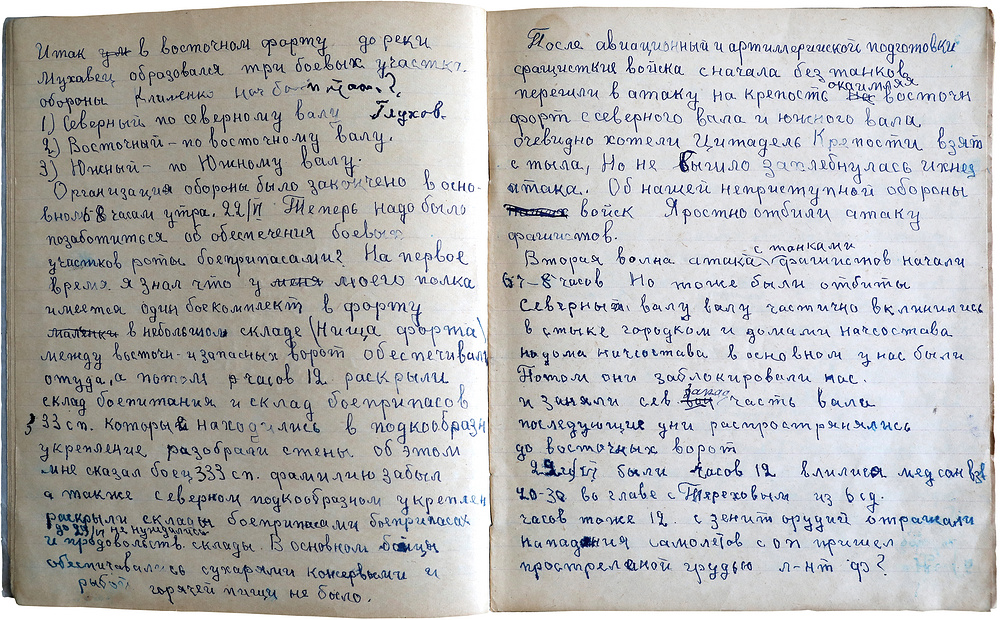 Итак в восточном форту до реки
Мухавец образовался три боевых участка.
обороны Клименко нач
1) Северный по северному валу Глухов.
2) Восточный - по восточному валу.
3) Южный - по Южному валу.
Организация обороны было закончено в осно-
вном к 8 часам утра. 22/VI Теперь надо было
позаботиться об обеспечения боевых
участков роты боеприпасами? На первое
время я знал что у меня моего полка
имеется один боекомплект в форту
маленьки в небольшом складе (Ниша форта)
между восточн- и запасных ворот обеспечивали
оттуда, а потом часов 12 раскрыли
склад боепитания и склад боеприпасов
333 сп. которые находились в подкообразн
укрепление разобрали стены об этом
мне сказал боец 333 сп. фамилию забыл
а также северном подкообразном укреплен
раскрыли склады боеприпасами боеприпасах
до 29/VI не нуждались
и продовольств. склады. В основном бойцы
обеспечивались сухарями консервыми и
рыбой горячей пищи не было.
После авиационный и артиллерийской подготовки
фашистские войска сначала без танков
перешли в атаку на крепость окаймляя на восточн
форт с северного вала и южного вала
очевидно хотели Цитадель Крепости взят
с тыла, Но не вышло захлебнулась их
атака. Об нашей неприступной обороны
войск Яростно отбили атаку
фашистов.
Вторая волна атака с танками фашистов начали
67-8 часов Но тоже были отбиты
Северный валу валу частично вклинились
в стыке городком и домами начсостава
но дома начсостава в основном у нас были
Потом они заблокировали нас.
и заняли сев запад часть вала
последующие дни распространялись
до восточных ворот
22/VI были часов 12 влились медсанвзв
20-30 во главе с Тереховым из 6 сд.
часов тоже 12. с зенит орудий отражали
нападения самолётов с оп пришел
простреленой грудью л-нт ф?